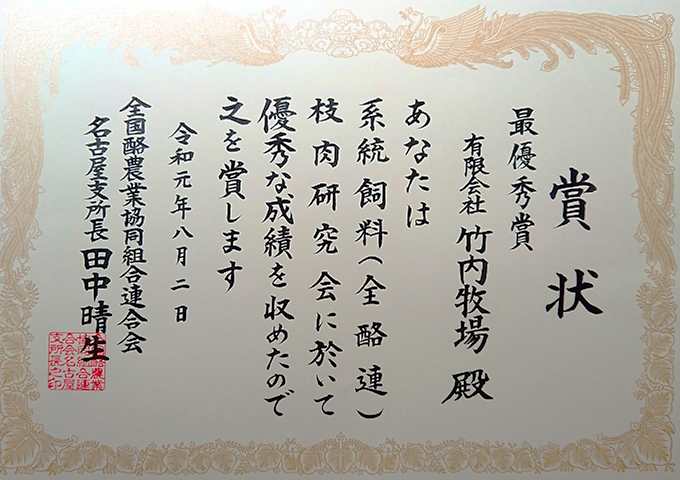 賞状
最優秀賞
有限会社 竹内牧場 殿
あなたは
系統飼料(全酪連)
枝肉研究会に於いて
優秀な成績を収めたので
之を賞します
令和元年八月二日
全国酪農業協同組合連合会
名古屋支所長 田中晴生